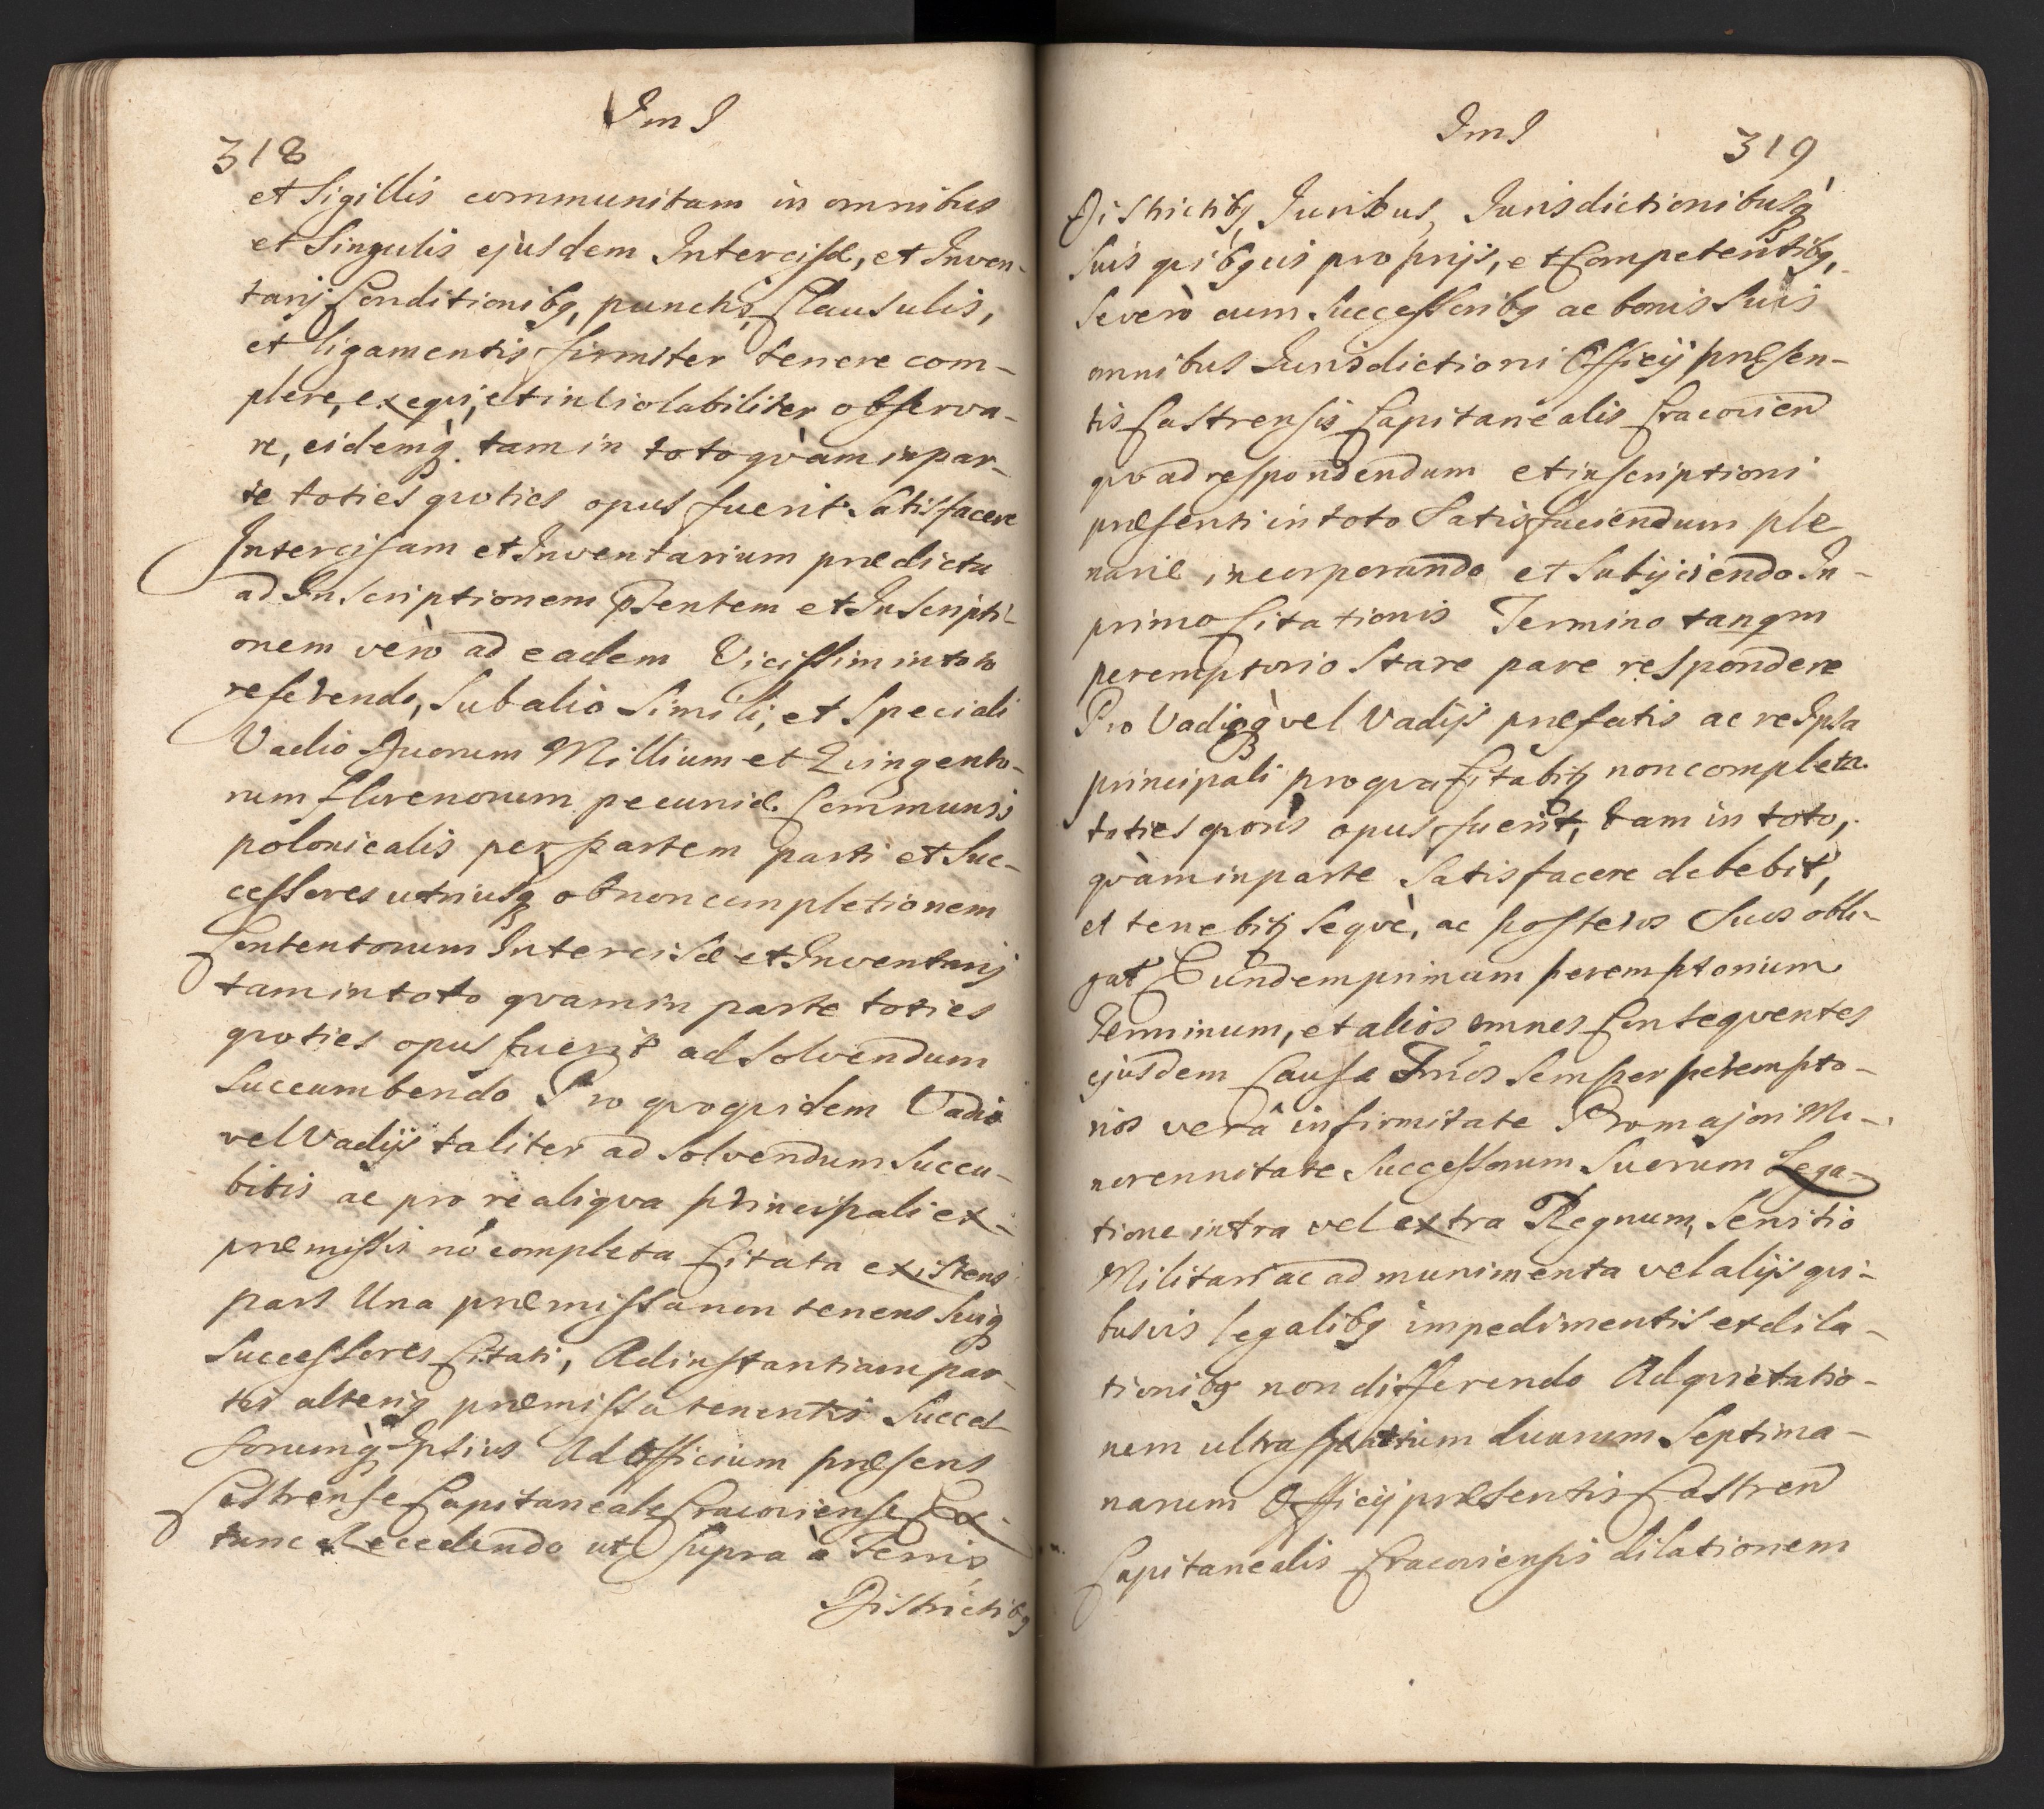 Im I
318
et Sigillis communitam in omnibus
et Singulis ejusdem Intercisæ, et Inven-
tarij Conditionibq, punctis, Clausulis,
et ligamentis firmiter tenere com-
plere, exeqvi, et inviolabiliter observa-
re, eidemq́ tam in toto qvàm in par-
te toties qvoties opus fuerit Satisfacere
Intercisam et Inventarium prædicta
ad Inscriptionem pŜentem et Inscripti-
onem verò ad eadem Vicissim in toto
referendo, Sub alio Simili, et Speciali
Vadio Duorum Millium et Qvingento-
rum florenorum pecuniæ Communis
polonicalis per partem parti et Suc-
cessores utriusq ob non completionem
Contentorum Intercisæ et Inventarij
tam in toto qvam in parte toties
qvoties opus fuerit ad Solvendum
Succumbendo Pro qvo qvidem Vadio
vel Vadijs taliter ad Solvendum Succu-
bitis ac pro re aliqva principali ex
præmissis nō completa Citata existens
pars Una præmissa non tenens Suiq
Successores Citati, Ad instantiam par-
tis alteriq præmissa tenentis Succes-
sorumq́ Ipsius Ad Officium præsens
Castrense Capitaneale Cracoviense Ex
tunc Recedendo ut Supra à Terris,
Districtibq
Im I
319
Districtibq, Juribus, Jurisdictionibusq́
Suis qvibqvis proprijs, et Competentibq,
Se verò cum Successoribq ac bonis Suis
omnibus Jurisdictioni Officij præsen-
tis Castrensis Capitanealis Cracovien
qvo ad respondendum et inscriptioni
præsenti in toto Satisfaciendum ple
nariè incorporando et Subijciendo In-
primo Citationis Termino tanqm
peremptorio Stare pare respondere
Pro Vadioq́ vel Vadijs præfatis ac re Ipsa
principali pro qva Citabitq non completa
toties qvoties opus fuerit, tam in toto,
qvàm in parte Satisfacere debebit,
et tenebitq Seqvè, ac posteros Suos obli-
gat Eundem primum peremptorium
Terminum, et alios omnes Conseqventes
ejusdem Causæ Tmos Semper perempto-
rios verâ infirmitate Pro majori Mi-
norennitate Successorum Suorum Lega-
tione intra vel extra Regnum, Servitio
Militari ac ad munimenta vel alijs qvi-
busvis legalibq impedimentis et dila-
tionibq non differendo Ad qvietatio-
nem ultra Spatium duarum Septima-
narum Officij præsentis Castren
Capitanealis Cracoviensis dilationem